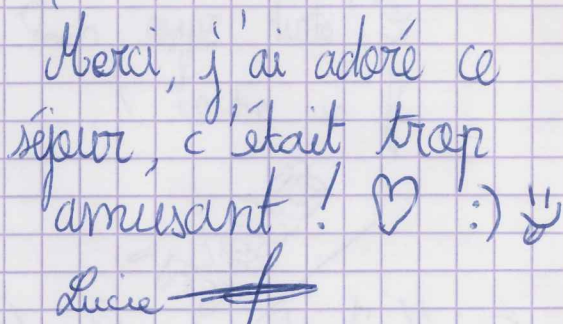 Merci, j'ai adoré ce
séjour, c'était trop
amusant ! ♡ :)
Lucie